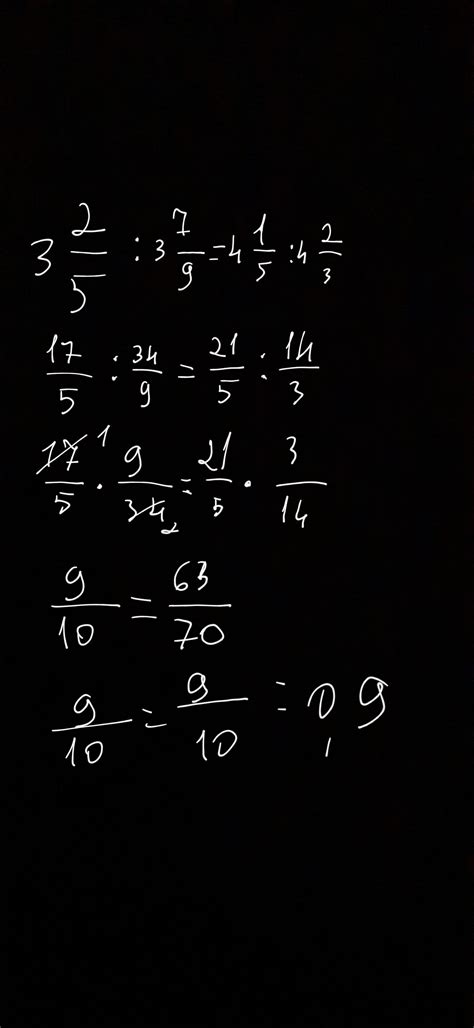 3 2/5 : 3 7/9 = 4 1/5 : 4 2/3
17/5 : 34/9 = 21/5 : 14/3
17/5 1 · 9/34 2 = 21/5 · 3/14
9/10 = 63/70
9/10 = 9/10 = 0,9